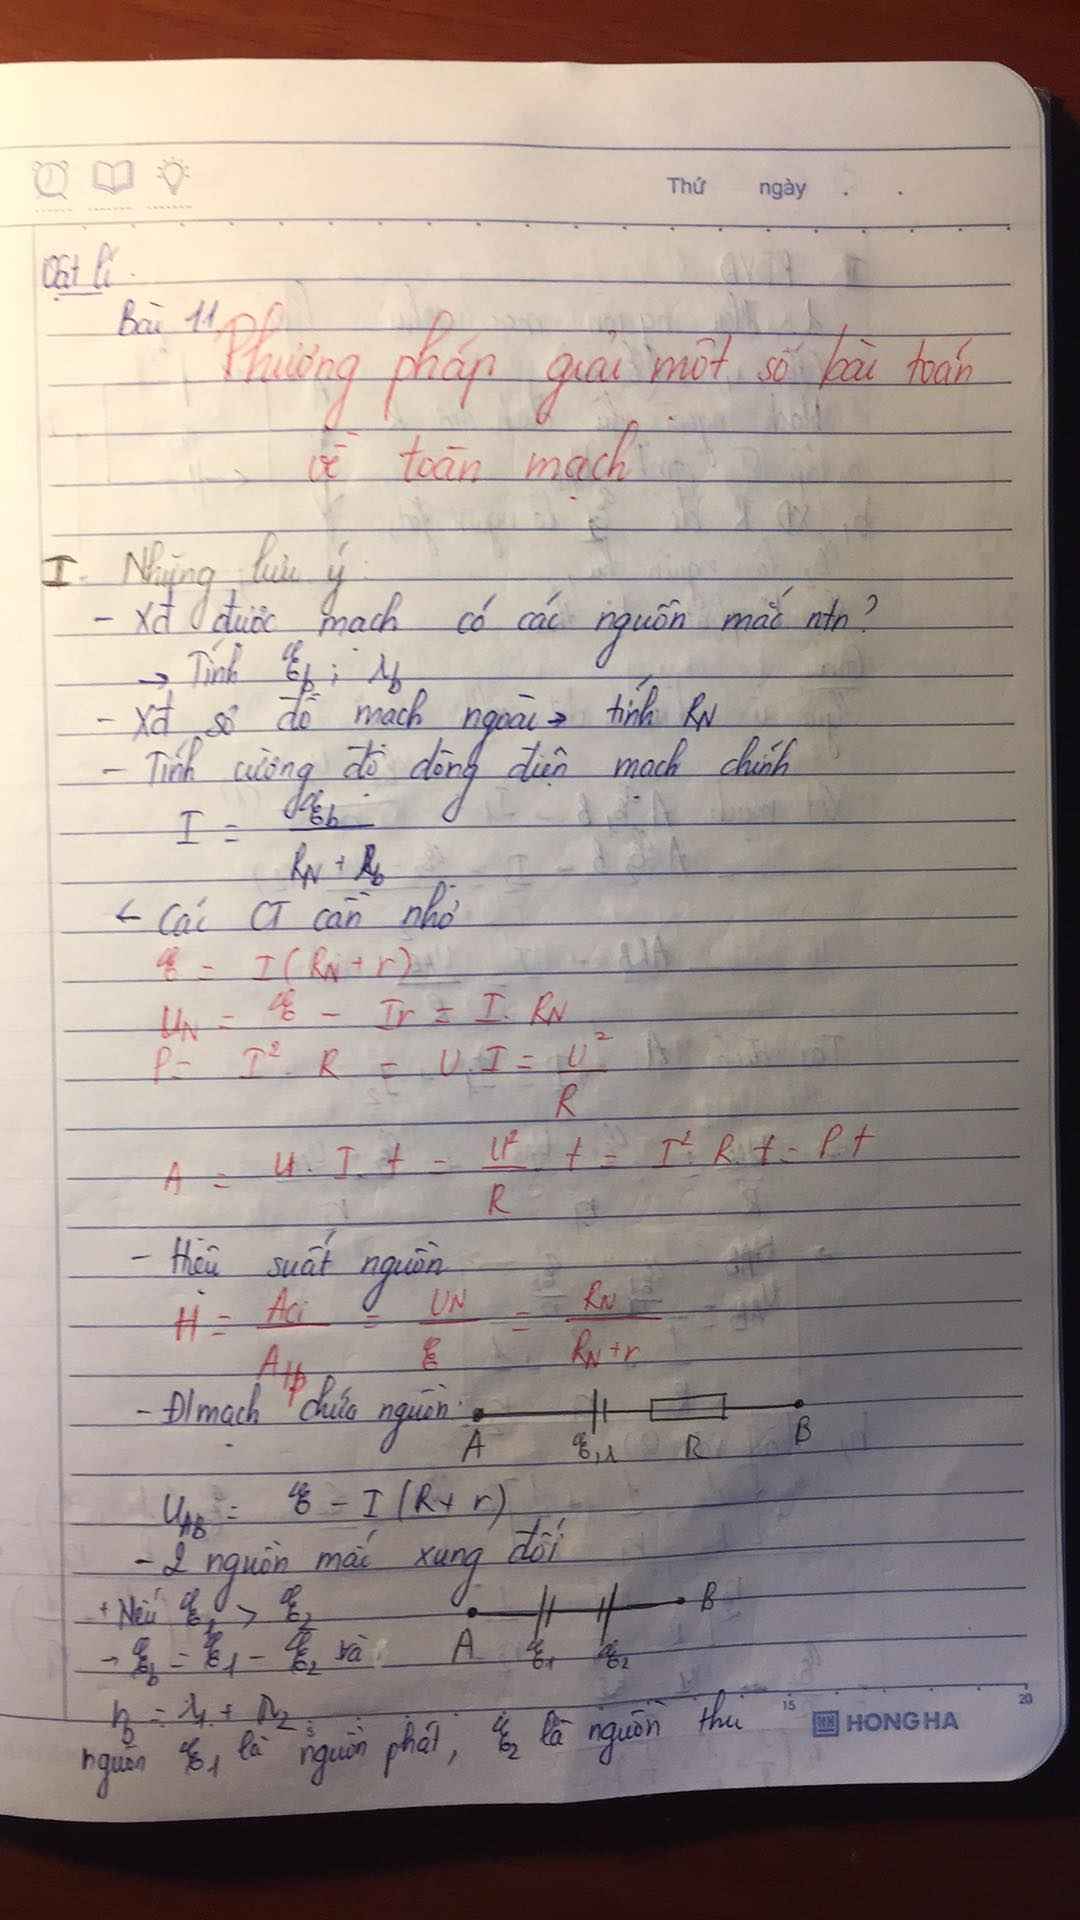 Thứ ngày . .
Vật lí.
Bài 11
Phương pháp giải một số bài toán
về toàn mạch
I. Những lưu ý:
- Xđ được mạch có các nguồn mắc ntn?
→ Tính ξb; rb
- Xđ sơ đồ mạch ngoài → tính RN
- Tính cường độ dòng điện mạch chính
I = ξb / (RN + Rb)
← Các CT cần nhớ
ξ = I(RN + r)
UN = ξ - Ir = I. RN
P = I². R = U.I = U²/R
A = U. I. t = U²/R t = I² R. t = P.t
- Hiệu suất nguồn
H = Aci/Atp = UN/ξ = RN/(RN+r)
- Đ/mạch chứa nguồn:
A ξ,r R B
UAB = ξ - I(R + r)
- 2 nguồn mắc xung đối
+ Nếu ξ1 > ξ2
A ξ1 ξ2 B
→ ξb = ξ1 - ξ2 và
rb = r1 + r2;
nguồn ξ1 là nguồn phát, ξ2 là nguồn thu
15 20
HONG HA